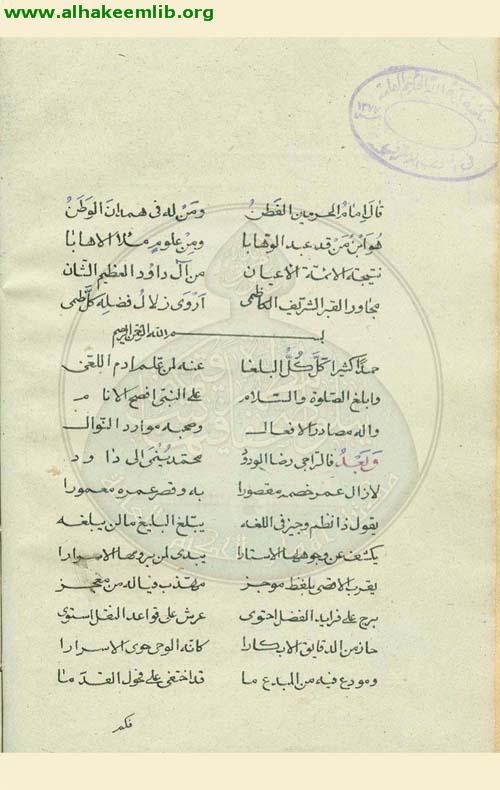 www.alhakeemlib.org
قال امام الحرمين الفطن ومن له في همدان الوطن
هو ابن من قد عبد الوهابا ومن علوم ملأ الاهابا
نتيجة الائمة الاعيان من آل داود العظيم الشان
مجاور القبر الشريف الكاظمي اروى زلال فضله كل ظمي
بسم الله الرحمن الرحيم
حمدا كثيرا كل كل البلغا عنه لمن علم ادم اللغى
وابلغ الصلوة والسلام على النبي افصح الانام
واله مصادر الافعال وصحبه موارد النوال
وبعد فالراجي رضا الودود محمد ينمى الى داود
لازال عمر خصمه مقصورا به وقصر عمره معمورا
يقول ذا نظم وجيز في اللغه يبتلغ البليغ ما لن يبلغه
يكشف عن وجوهها الاستارا يبدي لمن يرومها الاسرارا
يقرب الاقصى بلفظ موجز مهذب فياله من معجز
برج على فرايد الفضل احتوى عرش على قواعد النقل استوى
حاز من الدقايق الابكارا كانه الوحي حوى الاسرارا
ومودع فيه من المبدع ما قد اختفى على فحول القدما
فكم